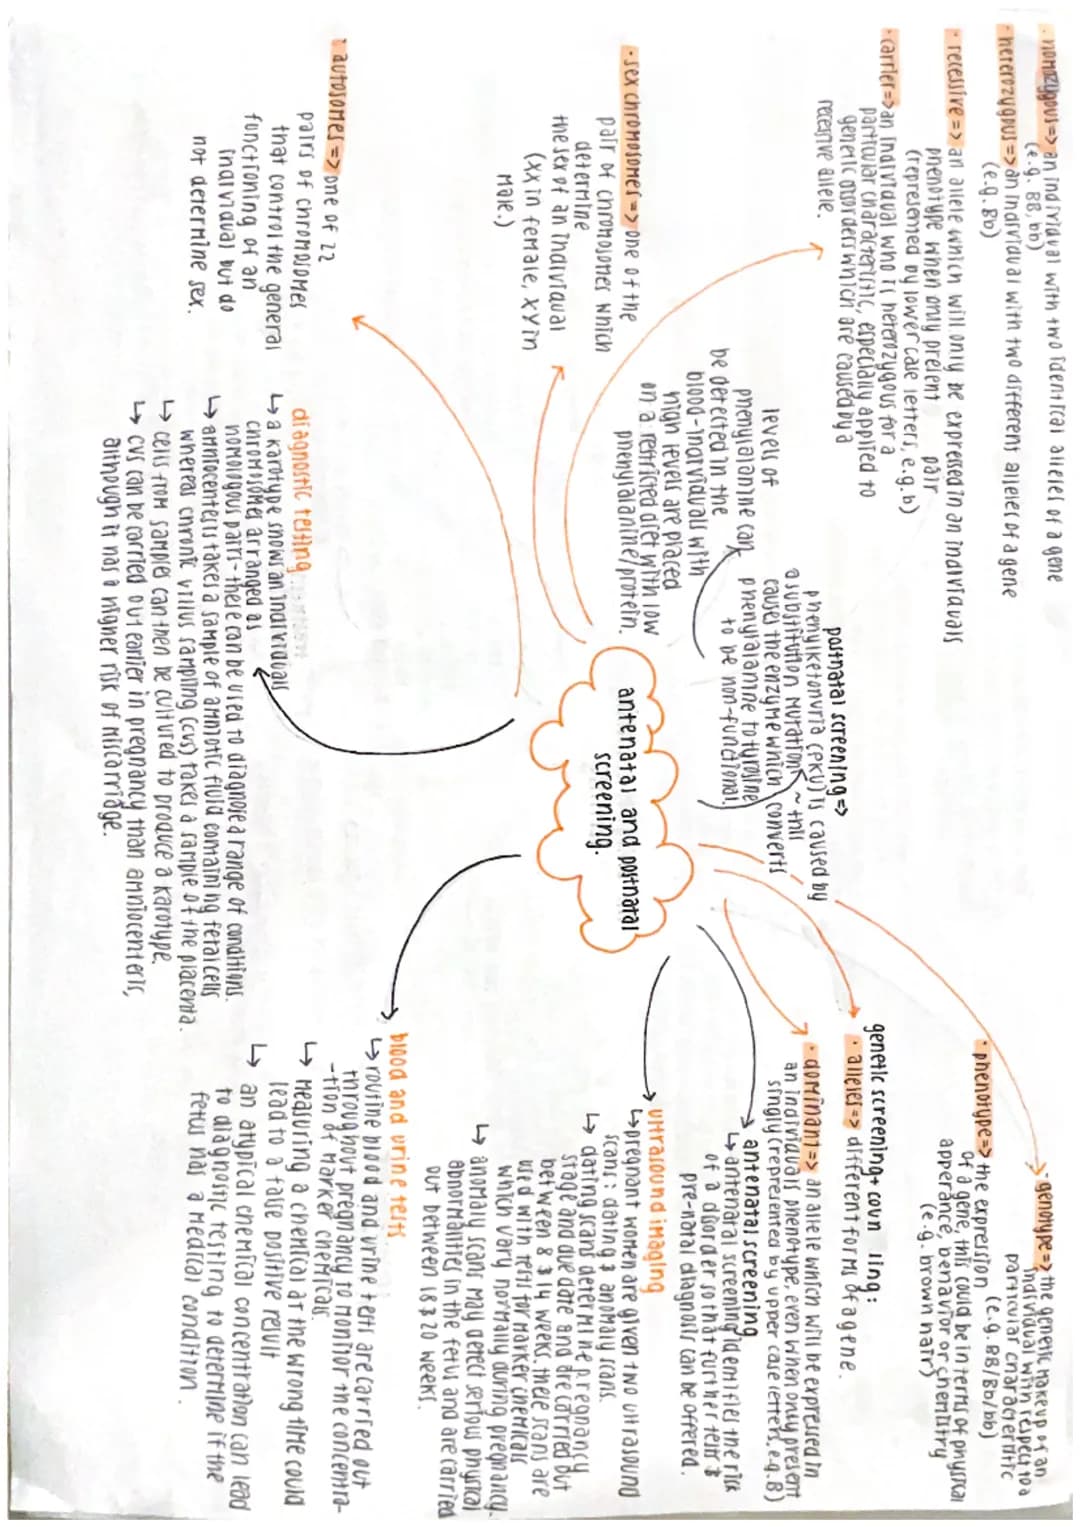 · homozygous => an individual with two identical alleles of a gene
(e.g. BB, bb)
· heterozygous => an individual with two different alleles of a gene
(e.g. Bb)
· recessive => an allele which will only be expressed in an individuals
phenotype when only present pair
(represented by lower case letters, e.g. b)
· carrier => an individual who is heterozygous for a
particular characteristic, especially applied to
genetic disorders which are caused by a
recessive allele.
· sex chromosomes => one of the
pair of chromosomes which
determine
the sex of an individual
(XX in female, XY in
male.)
· autosomes => one of 22
pairs of chromosomes
that control the general
functioning of an
individual but do
not determine sex.
postnatal screening =>
phenylketonuria (PKU) is caused by
a substitution mutation ~ this
causes the enzyme which converts
phenylalanine to tyrosine
to be non-functional.
levels of
phenylalanine can
be detected in the
blood - individuals with
high levels are placed
on a restricted diet with low
phenylalanine/protein.
antenatal and postnatal
screening.
· genotype => the genetic makeup of an
individual with respect to a
particular characteristic
(e.g. BB/Bb/bb)
· phenotype => the expression
of a gene, this could be in terms of physical
apperance, behavior or chemistry
(e.g. brown hair)
genetic screening + coun ling :
· alleles => different forms of a gene.
· dominant => an allele which will be expressed in
an individuals phenotype, even when only present
singly (represented by upper case letters, e.g. B)
antenatal screening
↳ antenatal screening identifies the risk
of a disorder so that further tests &
pre-natal diagnosis can be offered.
ultrasound imaging
↳ pregnant women are given two ultrasound
scans: dating & anomaly scans.
↳ dating scans determine pregnancy
stage and due date and are carried out
between 8 & 14 weeks. these scans are
used with tests for marker chemicals
which vary normally during pregnancy.
↳ anomaly scans may detect serious physical
abnormalities in the fetus and are carried
out between 18 & 20 weeks.
diagnostic testing
↳ a karotype shows an individuals
chromosomes arranged as
homologous pairs - there can be used to diagnose a range of conditions.
↳ amniocentesis takes a sample of amniotic fluid containing fetal cells
whereas chronic villus sampling (cvs) takes a sample of the placenta.
↳ cells from samples can then be cultured to produce a karotype.
↳ cvs can be carried out earlier in pregnancy than amniocentesis,
although it has a higher risk of miscarridge.
blood and urine tests
↳ routine blood and urine tests are carried out
throughout pregnancy to monitor the concentra-
-tion of marker chemicals.
↳ measuring a chemical at the wrong time could
lead to a false positive result
↳ an atypical chemical concentration can lead
to diagnostic testing to determine if the
fetus has a medical condition.